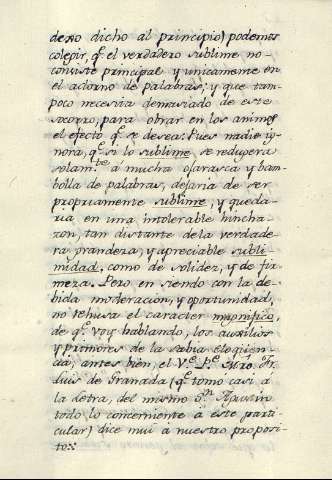 dexo dicho al principio) podemos
colegir, q.e el verdadero sublime no
consiste principal y unicamente en
el adorno de palabras; y que tam-
poco necesita demasiado de este
socorro, para obrar en los animos
el efecto q.e se desea: Pues nadie ig-
nora, q.e si lo sublime, se redugera
solam.te á mucha ojarasca y bam-
bolla de palabras, dejaria de ser
propriamente sublime, y queda-
ria en una intolerable hincha-
zon, tan distante de la verdade-
ra grandeza, y apreciable subli-
midad, como de solidez, y de fir-
meza. Pero, en siendo con la de-
bida moderacion, y oportunidad,
no rehusa el caracter magnifico,
de q.e voy hablando, los auxilios
y primores de la sabia eloqüen-
cia; antes bien, el V.e P.e Mro. Fr.
Luis de Granada (q.e tomo casi á
la letra, del mismo S.n Agustin
todo lo concerniente á este parti-
cular) dice mui á nuestro proposi-
to: